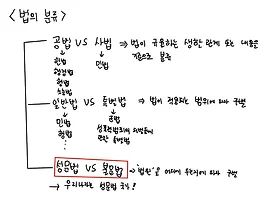 <법의 분류>
공법 VS 사법 ⇒ 법이 규율하는 생활 관계 또는 내용을
기준으로 분류
헌법 민법
행정법
형법
일반법 VS 특별법 ⇒ 법이 적용되는 범위에 따라 구별
민법 상법
형법 성폭력범죄의 처벌등에
관한 특별법
성문법 VS 불문법 ⇒ '법원'을 어디에 두는지에 따라 구별
→ 우리나라는 성문법 국가!